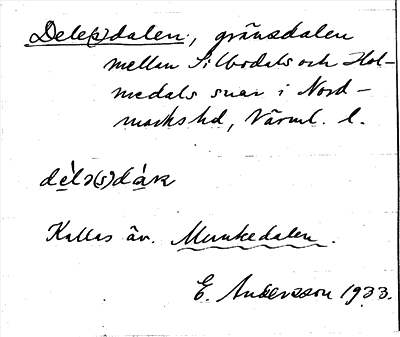 Dele(s)dalen, gränsdalen
mellan Silbodals och Hol-
medals snar i Nord-
marks hd, Värml. l.
Kallas äv. Munkedalen.
E. Andersson 1933.